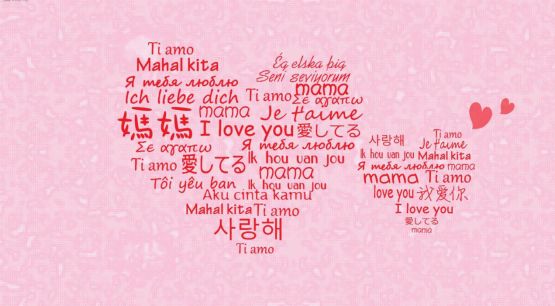 Ti amo
Mahal kita
Я тебя люблю
Ich liebe dich
Ég elska þig
Seni seviyorum
mama
Ti amo Σε αγαπω
mama Je t'aime
媽媽 I love you 愛してる
Σε αγαπω Я тебя люблю
Ti amo 愛してる Ik hou van jou
mama
Tôi yêu bạn Ik hou van jou
Aku cinta kamu
Mahal kita Ti amo
사랑해
Ti amo
사랑해 Ti amo
Je t'aime
Ik hou van jou Mahal kita
Я тебя люблю mama
mama Ti amo
love you 我愛你
I love you
愛してる
mama